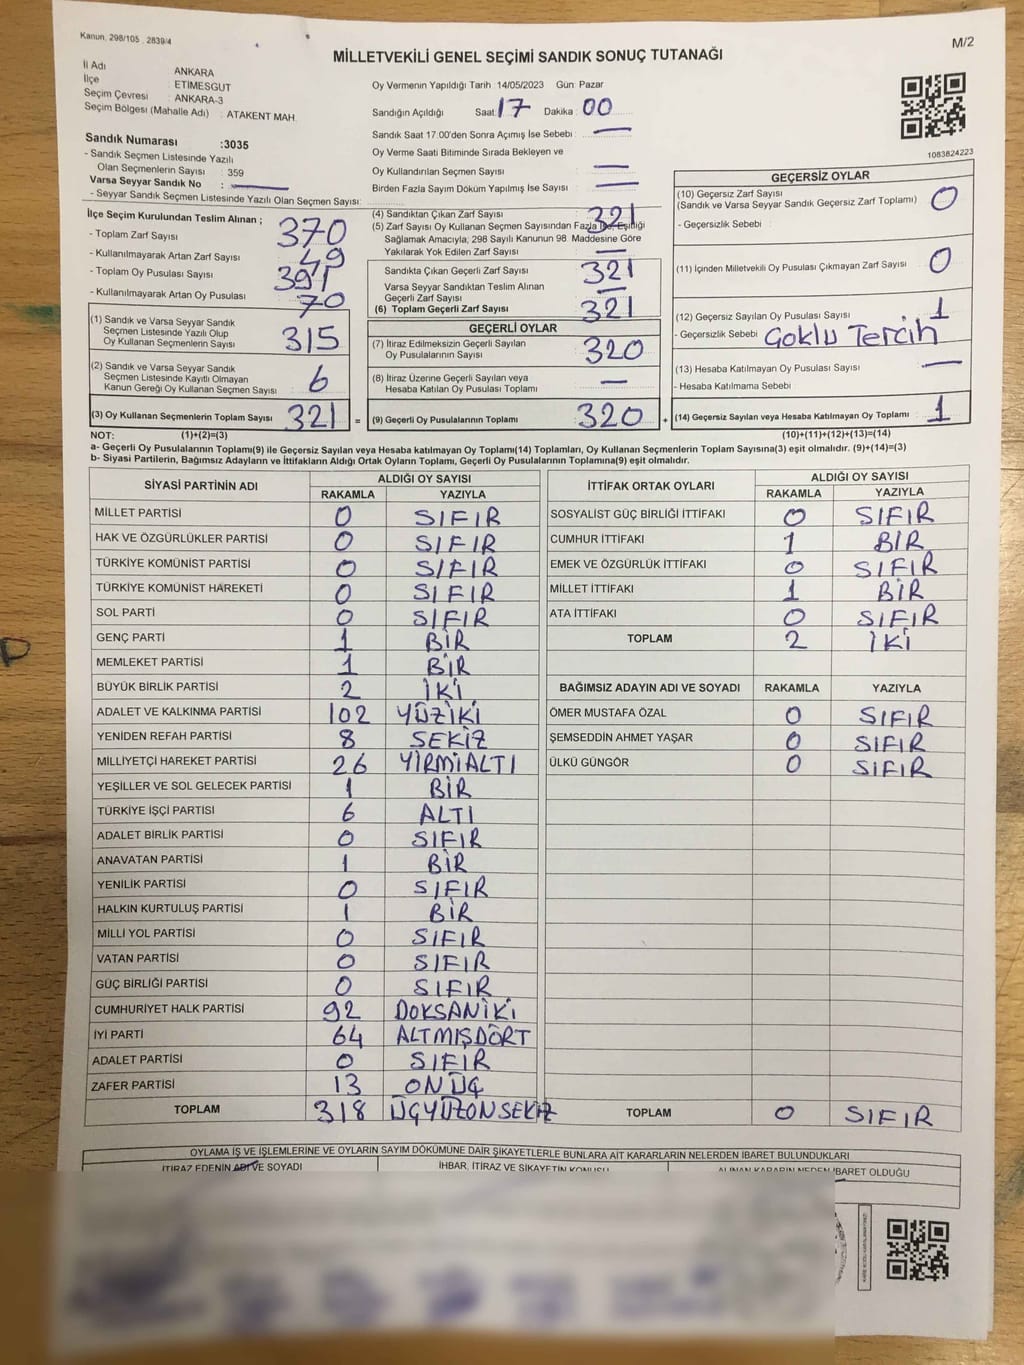 Kanun, 298/105 , 2839/4
MİLLETVEKİLİ GENEL SEÇİMİ SANDIK SONUÇ TUTANAĞI
M/2
İl Adı : ANKARA
İlçe : ETİMESGUT
Seçim Çevresi : ANKARA-3
Seçim Bölgesi (Mahalle Adı) : ATAKENT MAH.
Sandık Numarası :3035
- Sandık Seçmen Listesinde Yazılı
Olan Seçmenlerin Sayısı : 359
Varsa Seyyar Sandık No : —
- Seyyar Sandık Seçmen Listesinde Yazılı Olan Seçmen Sayısı:
Oy Vermenin Yapıldığı Tarih 14/05/2023 Gün: Pazar
Sandığın Açıldığı Saat: 17 Dakika : 00
Sandık Saat 17:00'den Sonra Açımış İse Sebebi : —
Oy Verme Saati Bitiminde Sırada Bekleyen ve
Oy Kullandırılan Seçmen Sayısı : —
Birden Fazla Sayım Döküm Yapılmış İse Sayısı : —
1083824223
İlçe Seçim Kurulundan Teslim Alınan ;
- Toplam Zarf Sayısı : 370
- Kullanılmayarak Artan Zarf Sayısı : 49
- Toplam Oy Pusulası Sayısı : 391
- Kullanılmayarak Artan Oy Pusulası : 70
(1) Sandık ve Varsa Seyyar Sandık
Seçmen Listesinde Yazılı Olup
Oy Kullanan Seçmenlerin Sayısı : 315
(2) Sandık ve Varsa Seyyar Sandık
Seçmen Listesinde Kayıtlı Olmayan
Kanun Gereği Oy Kullanan Seçmen Sayısı : 6
(3) Oy Kullanan Seçmenlerin Toplam Sayısı : 321 =
(4) Sandıktan Çıkan Zarf Sayısı : 321
(5) Zarf Sayısı Oy Kullanan Seçmen Sayısından Fazla İse, Eşitliği
Sağlamak Amacıyla, 298 Sayılı Kanunun 98. Maddesine Göre
Yakılarak Yok Edilen Zarf Sayısı : —
Sandıkta Çıkan Geçerli Zarf Sayısı : 321
Varsa Seyyar Sandıktan Teslim Alınan
Geçerli Zarf Sayısı : —
(6) Toplam Geçerli Zarf Sayısı : 321
GEÇERLİ OYLAR
(7) İtiraz Edilmeksizin Geçerli Sayılan
Oy Pusulalarının Sayısı : 320
(8) İtiraz Üzerine Geçerli Sayılan veya
Hesaba Katılan Oy Pusulası Toplamı : —
(9) Geçerli Oy Pusulalarının Toplamı : 320 +
GEÇERSİZ OYLAR
(10) Geçersiz Zarf Sayısı
(Sandık ve Varsa Seyyar Sandık Geçersiz Zarf Toplamı) : 0
- Geçersizlik Sebebi :
(11) İçinden Milletvekili Oy Pusulası Çıkmayan Zarf Sayısı : 0
(12) Geçersiz Sayılan Oy Pusulası Sayısı : 1
- Geçersizlik Sebebi : Çoklu Tercih
(13) Hesaba Katılmayan Oy Pusulası Sayısı : —
- Hesaba Katılmama Sebebi :
(14) Geçersiz Sayılan veya Hesaba Katılmayan Oy Toplamı : 1
NOT: (1)+(2)=(3) (10)+(11)+(12)+(13)=(14)
a- Geçerli Oy Pusulalarının Toplamı(9) ile Geçersiz Sayılan veya Hesaba katılmayan Oy Toplamı(14) Toplamları, Oy Kullanan Seçmenlerin Toplam Sayısına(3) eşit olmalıdır. (9)+(14)=(3)
b- Siyasi Partilerin, Bağımsız Adayların ve İttifakların Aldığı Ortak Oyların Toplamı, Geçerli Oy Pusulalarının Toplamına(9) eşit olmalıdır.
SİYASİ PARTİNİN ADI ALDIĞI OY SAYISI
RAKAMLA YAZIYLA
MİLLET PARTİSİ 0 SIFIR
HAK VE ÖZGÜRLÜKLER PARTİSİ 0 SIFIR
TÜRKİYE KOMÜNİST PARTİSİ 0 SIFIR
TÜRKİYE KOMÜNİST HAREKETİ 0 SIFIR
SOL PARTİ 0 SIFIR
GENÇ PARTİ 1 BİR
MEMLEKET PARTİSİ 1 BİR
BÜYÜK BİRLİK PARTİSİ 2 İKİ
ADALET VE KALKINMA PARTİSİ 102 YÜZİKİ
YENİDEN REFAH PARTİSİ 8 SEKİZ
MİLLİYETÇİ HAREKET PARTİSİ 26 YİRMİALTI
YEŞİLLER VE SOL GELECEK PARTİSİ 1 BİR
TÜRKİYE İŞÇİ PARTİSİ 6 ALTI
ADALET BİRLİK PARTİSİ 0 SIFIR
ANAVATAN PARTİSİ 1 BİR
YENİLİK PARTİSİ 0 SIFIR
HALKIN KURTULUŞ PARTİSİ 1 BİR
MİLLİ YOL PARTİSİ 0 SIFIR
VATAN PARTİSİ 0 SIFIR
GÜÇ BİRLİĞİ PARTİSİ 0 SIFIR
CUMHURİYET HALK PARTİSİ 92 DOKSANİKİ
İYİ PARTİ 64 ALTMIŞDÖRT
ADALET PARTİSİ 0 SIFIR
ZAFER PARTİSİ 13 ONÜÇ
TOPLAM 318 ÜÇYÜZONSEKİZ
İTTİFAK ORTAK OYLARI ALDIĞI OY SAYISI
RAKAMLA YAZIYLA
SOSYALİST GÜÇ BİRLİĞİ İTTİFAKI 0 SIFIR
CUMHUR İTTİFAKI 1 BİR
EMEK VE ÖZGÜRLÜK İTTİFAKI 0 SIFIR
MİLLET İTTİFAKI 1 BİR
ATA İTTİFAKI 0 SIFIR
TOPLAM 2 İKİ
BAĞIMSIZ ADAYIN ADI VE SOYADI RAKAMLA YAZIYLA
ÖMER MUSTAFA ÖZAL 0 SIFIR
ŞEMSEDDİN AHMET YAŞAR 0 SIFIR
ÜLKÜ GÜNGÖR 0 SIFIR
TOPLAM 0 SIFIR
OYLAMA İŞ VE İŞLEMLERİNE VE OYLARIN SAYIM DÖKÜMÜNE DAİR ŞİKAYETLERLE BUNLARA AİT KARARLARIN NELERDEN İBARET BULUNDUKLARI
İTİRAZ EDENİN ADI VE SOYADI İHBAR, İTİRAZ VE ŞİKAYETİN KONUSU ALINAN KARARIN NEDEN İBARET OLDUĞU